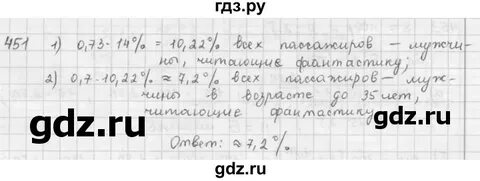 гдз.ру
451 1) 0,73 · 14% = 10,22% всех пассажиров – мужчи-
ны, читающие фантастику;
2) 0,7 · 10,22% ≈ 7,2% всех пассажиров – муж-
чины в возрасте до 35 лет,
читающие фантастику
гдз.ру гдз.ру
Ответ: ≈ 7,2%